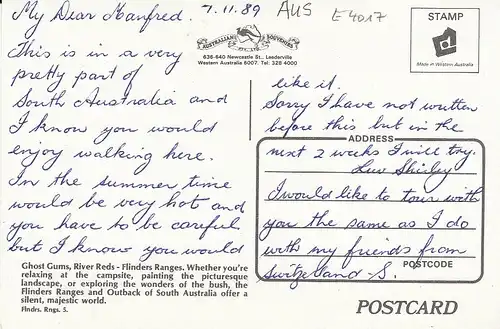 My Dear Manfred.
7.11.89
AUS
E4017
STAMP
Made in Western Australia
AUSTRALIAN SOUVENIRS
636-640 Newcastle St., Leederville
Western Australia 6007. Tel: 328 4000
This is in a very
pretty part of
South Australia and
I know you would
enjoy walking here.
In the summer time
would be very hot and
you have to be careful
but I know you would
like it.
Sorry I have not written
before this but in the
ADDRESS
next 2 weeks I will try.
Luv Shirley
I would like to tour with
you the same as I do
with my friends from
Switzerland - S.
POSTCODE
Ghost Gums, River Reds - Flinders Ranges. Whether you're
relaxing at the campsite, painting the picturesque
landscape, or exploring the wonders of the bush, the
Flinders Ranges and Outback of South Australia offer a
silent, majestic world.
Flndrs. Rngs. 5.
POSTCARD